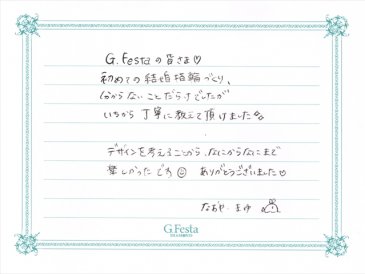 G.Festaの皆さま♡
初めての結婚指輪づくり、
分からないことだらけでしたが
いちから丁寧に教えて頂けました
デザインを考えることから、なにからなにまで
楽しかったです☺ ありがとうございました♡
なおや まゆ
G.Festa